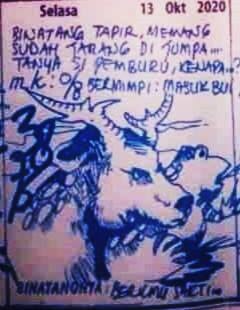 Selasa 13 Okt 2020
BINATANG TAPIR, MEMANG
SUDAH JARANG DI JUMPA....
TANYA SI PEMBURU, KENAPA..?
MK: O/8 BERMIMPI: MASUK BUI
BINATANGNYA: BERILMU SAKTI